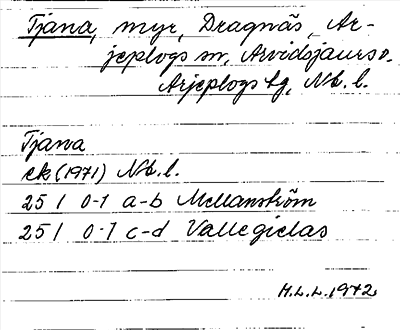 Tjana, myr, Dragnäs, Ar-
jeplogs sn, Arvidsjaurs o.
Arjeplogs tg, Nb. l.
Tjana
ek (1971) Nb. l.
25 I 0-1 a-b Mellanström
25 I 0-1 c-d Vallegielas
M.L.L. 1972